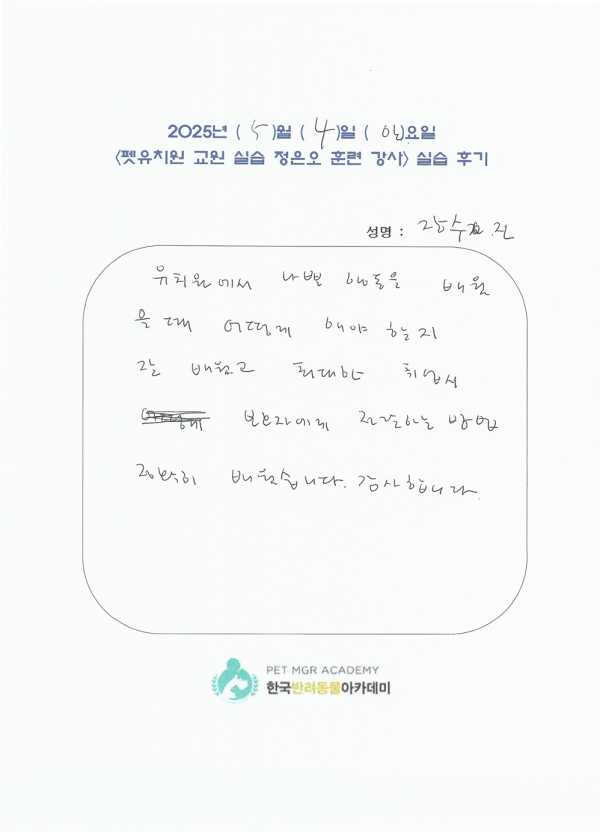 2025년 ( 5 )월 ( 4 )일 ( 일 )요일
<펫유치원 교원 실습 정은오 훈련 강사> 실습 후기
성명 :
유치원에서 나쁜 행동을 배웠
을 때 어떻게 해야 하는지
잘 배웠고 최대한 취업시
보호자에게 전달하는 방법
정확히 배웠습니다. 감사합니다.
PET MGR ACADEMY
한국반려동물아카데미